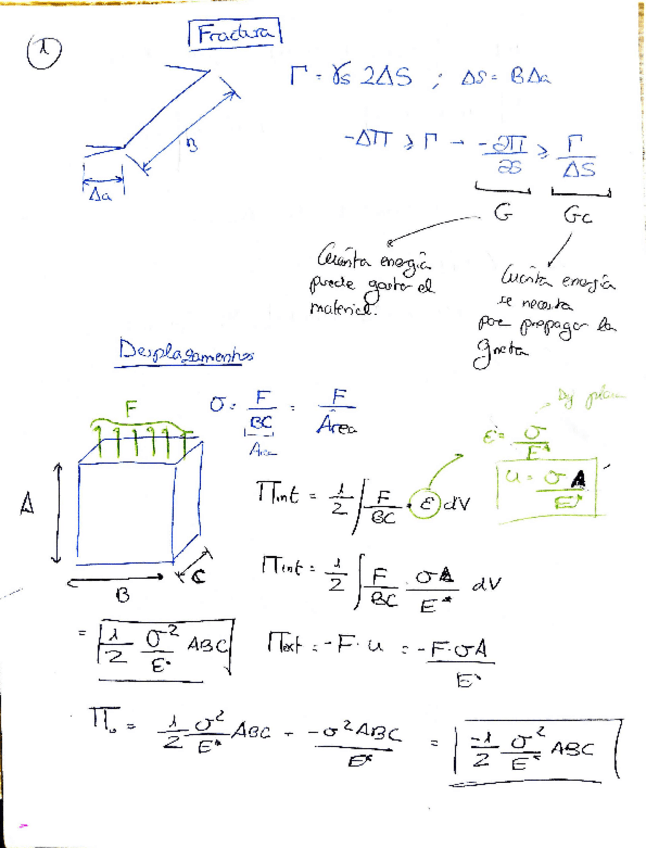 1
Fractura
Γ = γs 2ΔS ; ΔS = BΔa
B
Δa
-ΔΠ ≥ Γ → -∂Π/∂S ≥ Γ/ΔS
G Gc
Cuánta energía
puede gastar el
material.
Cuánta energía
se necesita
por propagar la
grieta
Desplazamientos
F
σ = F/BC = F/Área
Área
A
B
C
Πint = 1/2 ∫ F/BC · ε dV
ε = σ/E*
u = σA/E*
Πint = 1/2 ∫ F/BC · σA/E* dV
= 1/2 σ²/E* ABC
Πext = -F·u = -F·σA/E*
Π = 1/2 σ²/E* ABC - -σ²ABC/E* = -1/2 σ²/E* ABC